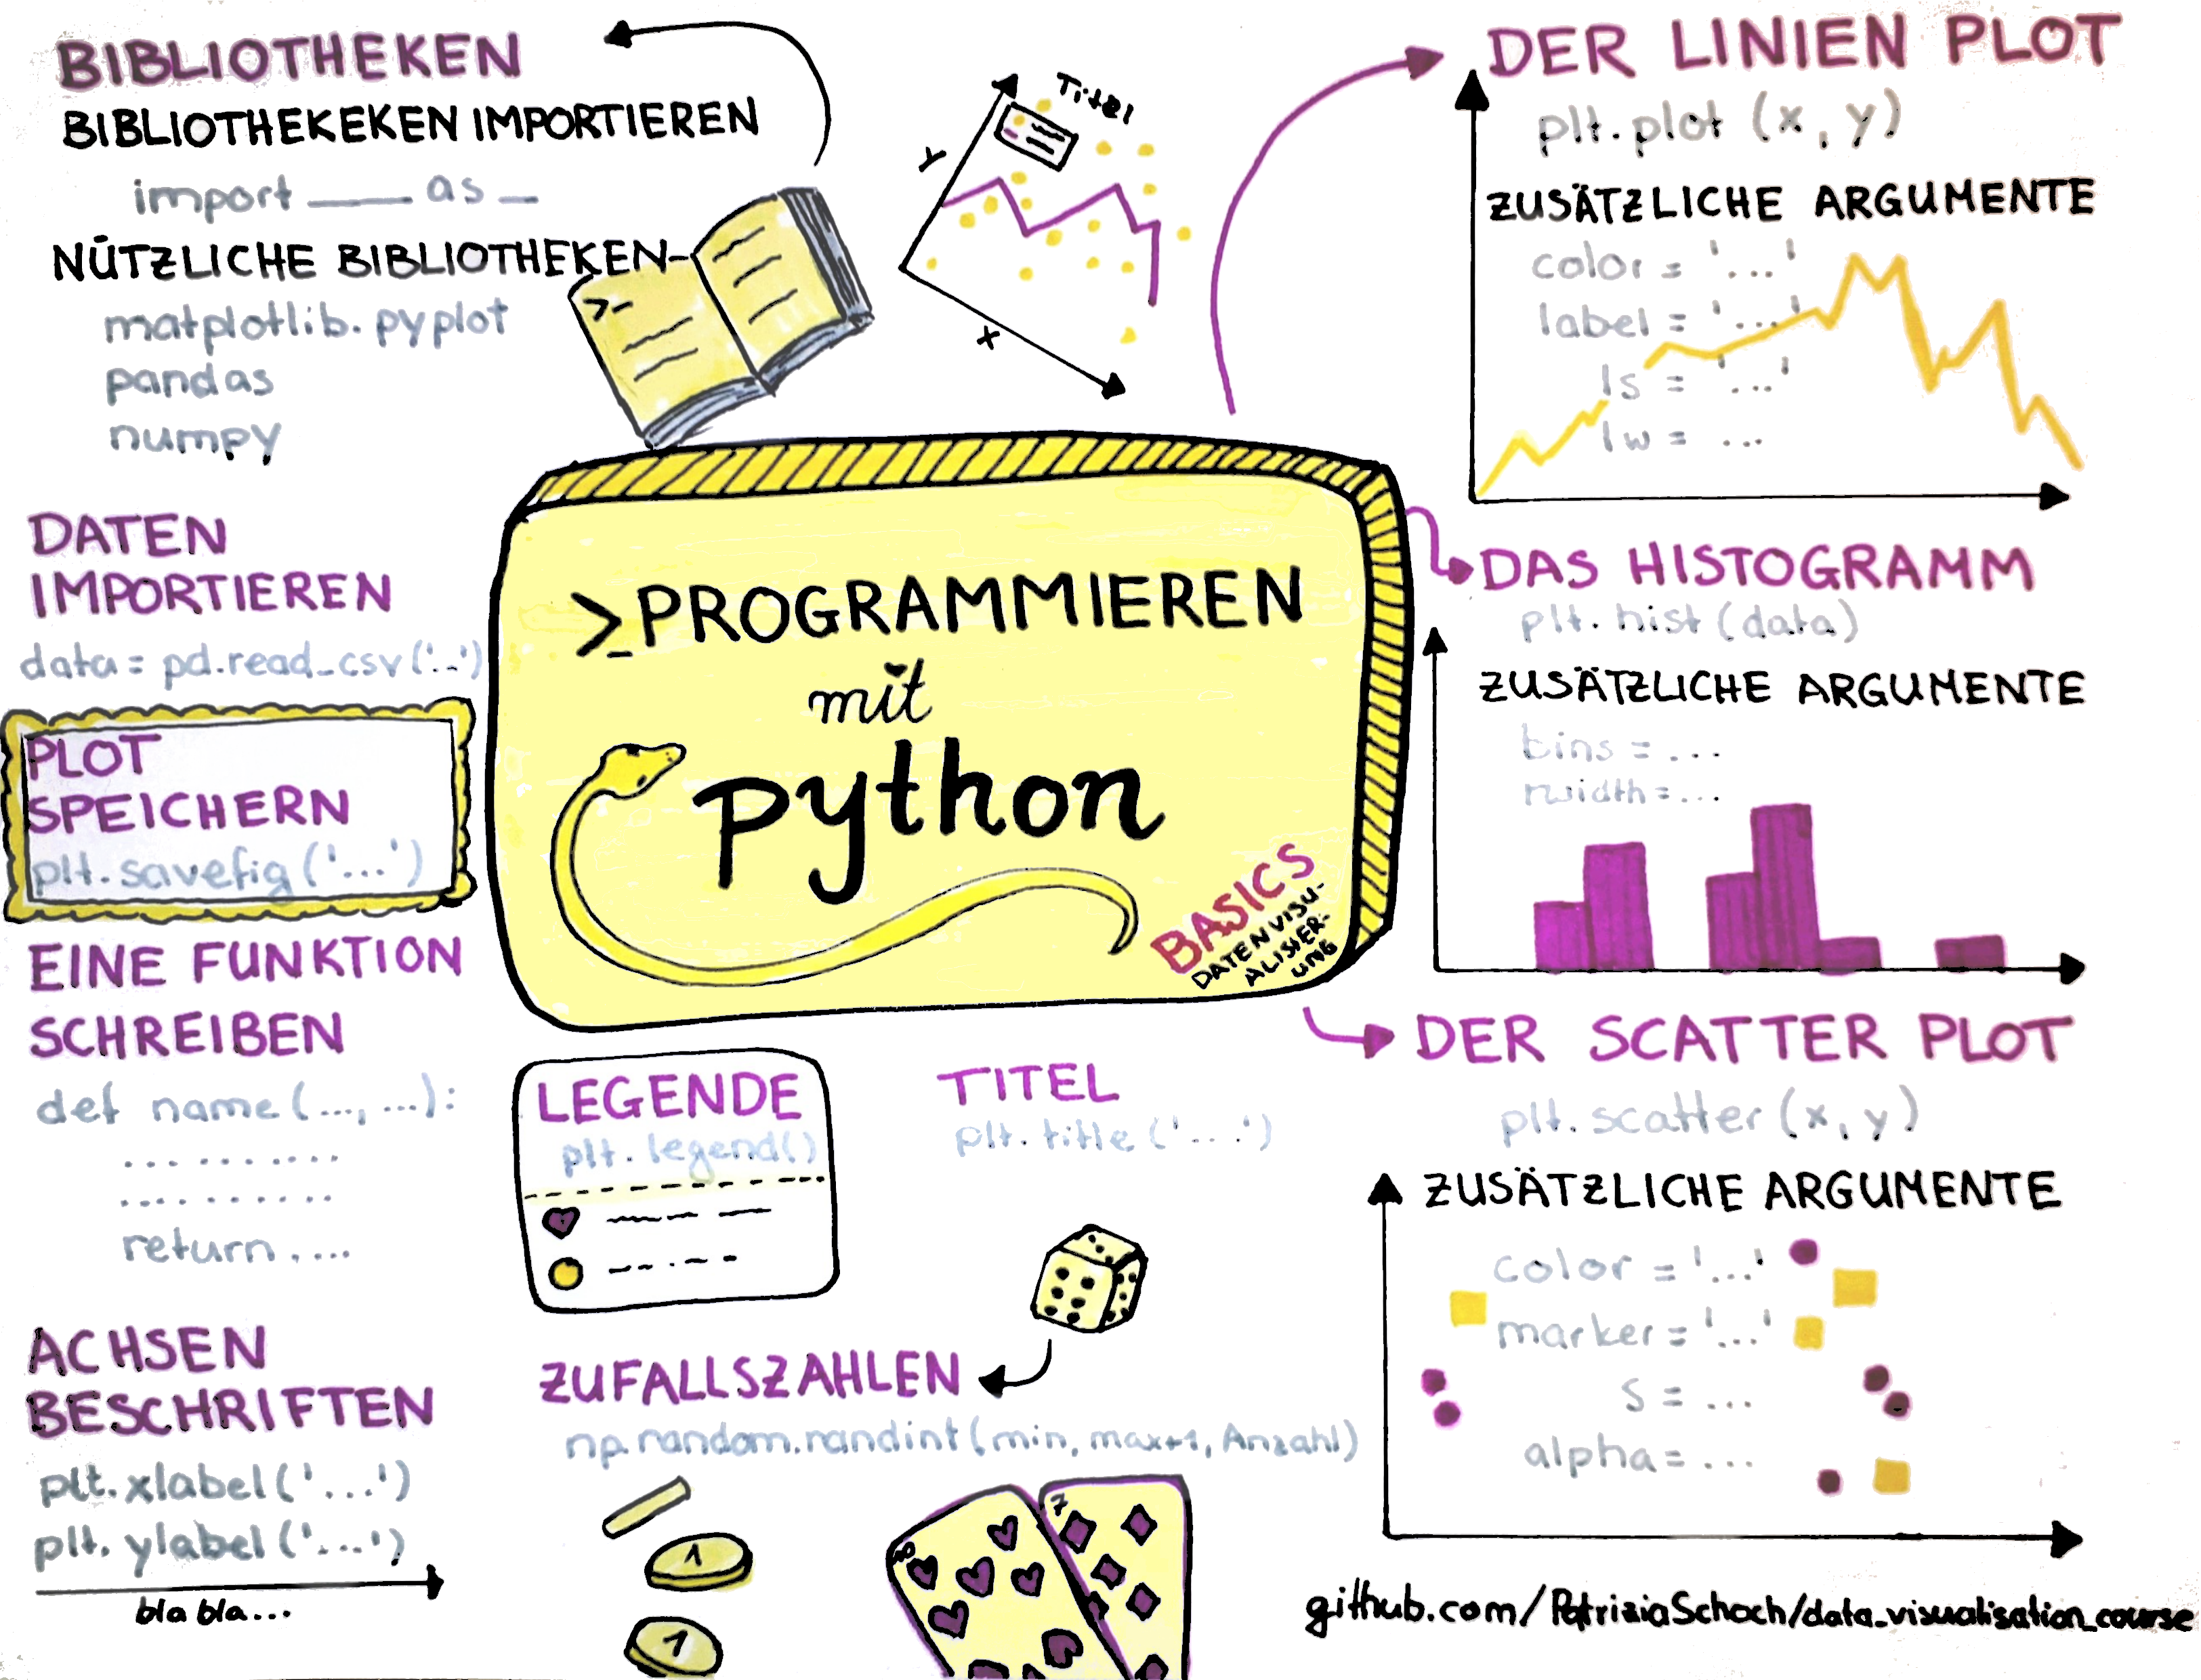 BIBLIOTHEKEN
BIBLIOTHEKEKEN IMPORTIEREN
import ___ as _
NÜTZLICHE BIBLIOTHEKEN-
matplotlib.pyplot
pandas
numpy
>-
Titel
y
x
DER LINIEN PLOT
plt.plot (x, y)
ZUSÄTZLICHE ARGUMENTE
color = '...'
label = '...'
ls = '...'
lw = ...
DATEN
IMPORTIEREN
data = pd.read_csv('..')
PLOT
SPEICHERN
plt.savefig('...')
>_PROGRAMMIEREN
mit
python
BASICS
DATENVISU-
ALISIER-
UNG
DAS HISTOGRAMM
plt.hist (data)
ZUSÄTZLICHE ARGUMENTE
bins = ...
rwidth = ...
EINE FUNKTION
SCHREIBEN
def name (..., ...):
...........
..........
return ....
LEGENDE
plt.legend()
TITEL
plt.title ('...')
DER SCATTER PLOT
plt.scatter (x, y)
ZUSÄTZLICHE ARGUMENTE
color = '...'
marker = '...'
s = ...
alpha = ...
ACHSEN
BESCHRIFTEN
plt.xlabel('...')
plt.ylabel('...')
bla bla...
ZUFALLSZAHLEN
np.random.randint(min, max+1, Anzahl)
1
1
8
7
github.com/PatriziaSchoch/data_visualisation_course